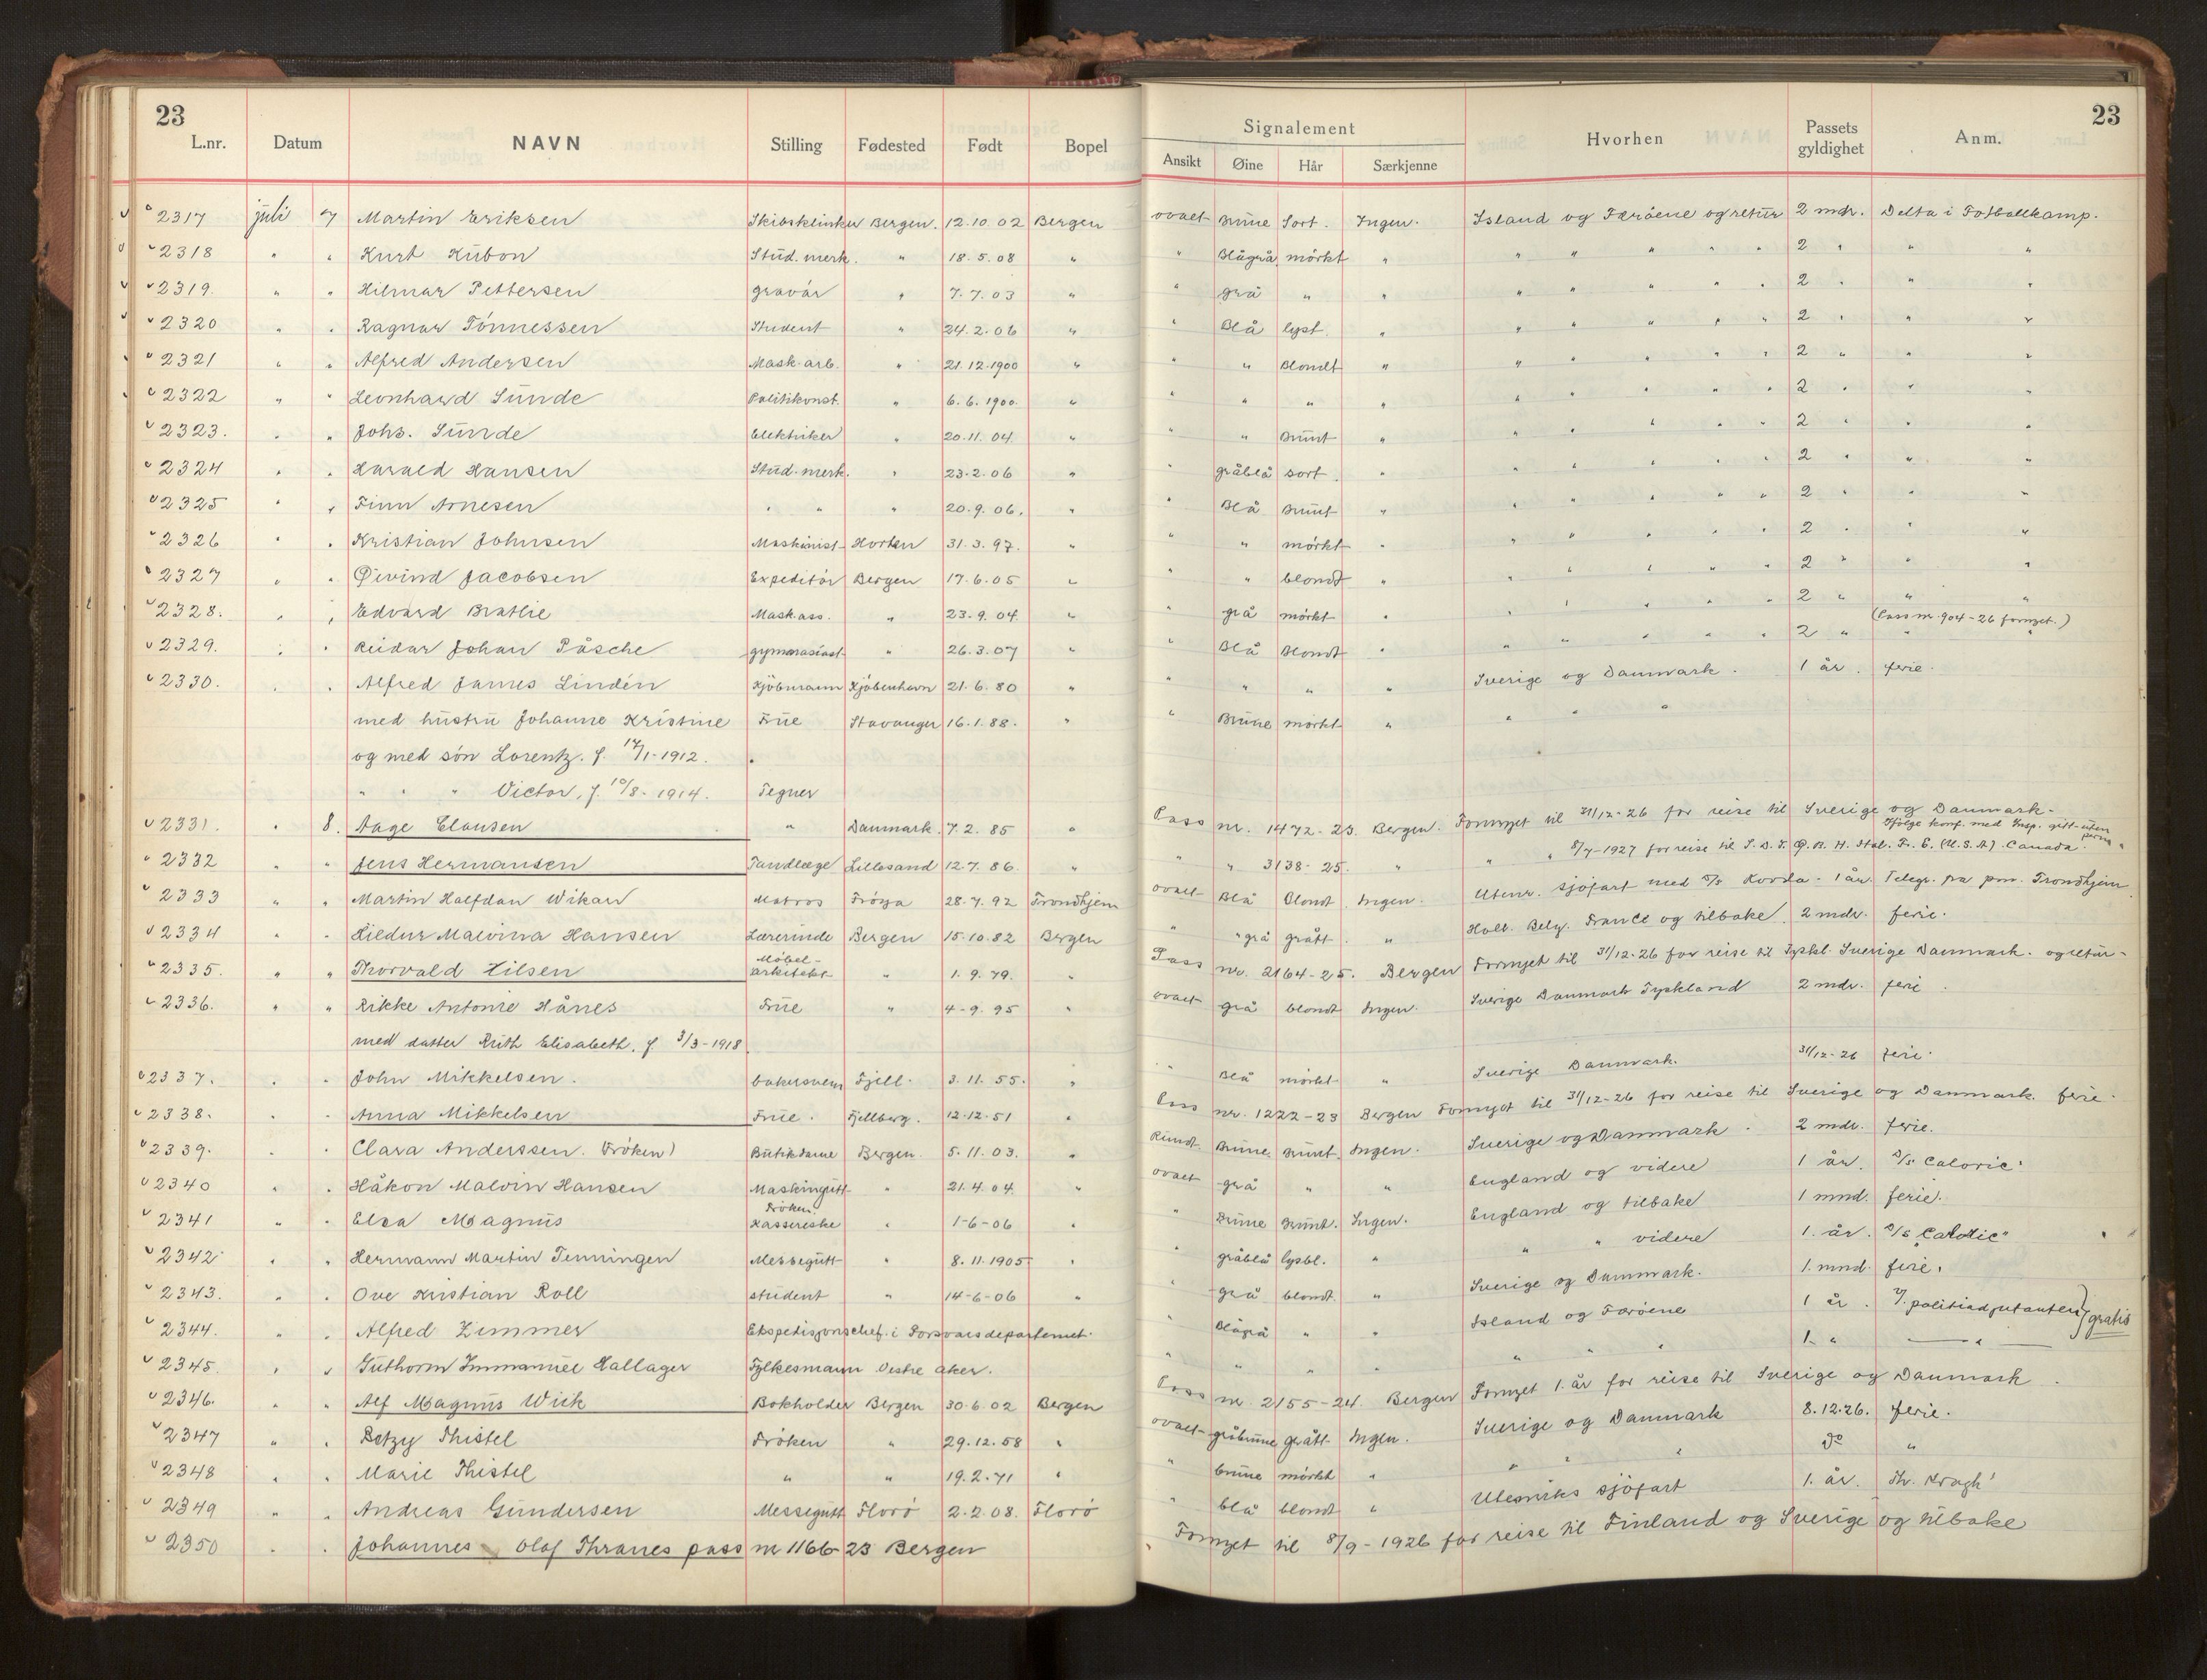 23
L.nr. Datum NAVN Stilling Fødested Født Bopel Signalement Ansikt Øine Hår Særkjenne Hvorhen Passets gyldighet Anm.
23
2317 juli 7 Martin Eriksen Skibsklinker Bergen. 12.10.02 Bergen ovalt Brune Sort. Ingen. Island og Færøene og retur 2 mdr. Delta i Fotballkamp.
2318 " " Kurt Kubon Stud. merk. " 18.5.08 " " Blågrå mørkt " " " " " " 2 " " "
2319. " " Hilmar Pettersen gravør " 7.7.03 " " grå " " " " " " " 2 " " "
2320 " " Ragnar Tönnessen Student " 24.2.06 " " Blå lyst. " " " " " " 2 " " "
2321 " " Alfred Andersen Mask. arb. " 21.12.1900 " " " Blondt " " " " " " 2 " " "
2322 " " Leonhard Sunde Politikonst. " 6.6.1900. " " " " " " " " " " 2 " " "
2323. " " Johs. Sunde Elektriker " 20.11.04. " " " Brunt " " " " " " 2 " " "
2324 " " Harald Hansen Stud. merk. " 23.2.06 " " gråblå sort. " " " " " " 2 " " "
2325 " " Finn Arnesen " " " 20.9.06. " " Blå Brunt " " " " " " 2 " " "
2326 " " Kristian Johnsen Maskinist Horten 31.3.97. " " " mörkt " " " " " " 2 " " "
2327 " " Øivind Jacobsen Expeditör Bergen 17.6.05 " " " blondt " " " " " " 2 " " "
2328. " " Edvard Bratlie Mask.ass. " 23.9.04. " " grå mörkt " " " " " " 2 " " "
(Pass nr. 904-26 fornyet.)
2329. " " Reidar Johan Påsche gymnasiast " 26.3.07 " " Blå Blondt " " " " " " 2 " " "
2330. " " Alfred James Lindén Kjöbmann Kjöbenhavn 21.6.80 " " " " " Sverige og Danmark. 1 år. ferie.
med hustru Johanne Kristine Frue Stavanger 16.1.88. " " Brune mörkt " " " "
og med sön Lorentz. f. 17/1-1912.
" " " Victor, f. 10/8-1914. Tegner
2331. " 8. Aage Clausen " Danmark. 7.2.85 " Pass nr. 1472-23. Bergen. Fornyet til 31/12-26 for reise til Sverige og Danmark.
Ifölge konf. med Insp. gitt uten
2332 " " Jens Hermansen Tandlæge Lillesand 12.7.86. " " " 3138-25. " " " 8/7-1927 for reise til (U.S.A) Canada.
2333 " " Martin Halfdan Wikan Matros Fröya 28.7.92 Trondhjem ovalt Blå Blondt. Ingen. Utenr. sjöfart med S/S Korda. 1 år. Telegr. fra Trondhjem
2334 " " Hildur Malvina Hansen Lærerinde Bergen 15.10.82 Bergen " "grå grått. " Holl. Belg. France og tilbake. 2 mdr. ferie.
2335. " " Thorvald Lilsen Möbel-arkitekt " 1.9.79. " Pass nr. 2164-25. Bergen Fornyet til 31/12-26 for reise til Tyskl. Sverige Danmark. og retur
2336. " " Rikke Antonie Hånes Frue " 4-9.95 " ovalt grå blondt Ingen. Sverige Danmark Tyskland 2 mdr. ferie.
med datter Ruth Elisabeth. f. 3/3-1918
2337. " " John Mikkelsen. bakersvenn Fjell. 3.11.55. " " Blå mörkt " Sverige Danmark. 31/12-26 ferie.
2338. " " Anna Mikkelsen Frue. Fjellberg. 12.12.51 " Pass nr. 1222-23 Bergen Fornyet til 31/12-26 for reise til Sverige og Danmark. ferie.
2339. " " Clara Anderssen. (Fröken) Butikdame Bergen. 5.11.03. " Rundt Brune Brunt. Ingen. Sverige og Danmark. 2 mdr. ferie.
2340 " " Håkon Malvin Hansen Maskingutt " 21.4.04. " ovalt grå " " England og videre 1 år. S/S Caloric"
2341 " " Elsa Magnus Fröken Kassererske " 1-6-06 " " Brune Brunt. Ingen. England og tilbake 1 mnd. ferie.
2342 " " Hermann Martin Tenningen Messegutt " 8.11.1905 " " gråblå lysbl. " " " videre 1. år. S/S Caloric"
2343. " " Ove Kristian Roll student " 14-6-06 " " grå blondt. " Sverige og Danmark. 1. mnd. ferie.
2344. " " Alfred Zimmer Ekspedisjonschef. i Forsvarsdepartemet. " Blågrå " " Island og Færöene 1 år. politiadjutanten) gratis
2345. " " Guthorm Immanuel Hallager Fylkesmann Vestre Aker. " " " " " " 1. " "
2346. " " Alf Magnus Wick Bokholder Bergen 30.6.02 Bergen Pass nr. 2155-24. Bergen Fornyet 1. år for reise til Sverige og Danmark.
2347 " " Betzy Thistel Fröken " 29.12.58 " ovalt gråbrune grått. Ingen. Sverige og Danmark 8.12.26. ferie.
2348 " " Marie Thistel " " 19.2.71 " " brune mörkt " " " " do "
2349 " " Andreas Gundersen Messegutt Florö 2.2.08. Florö " blå blondt " Utenriks sjöfart 1. år. Th. Kragh"
2350 " " Johannes Olaf Thranes pass nr 1166-23 Bergen Fornyet til 8/9-1926 for reise til Finland og Sverige og tilbake